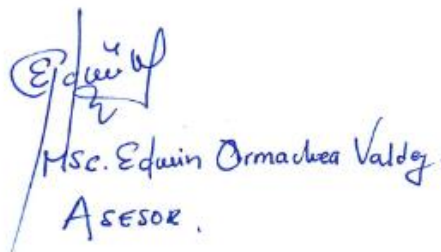 Edwin
Msc. Edwin Ormachea Valdez
ASESOR.